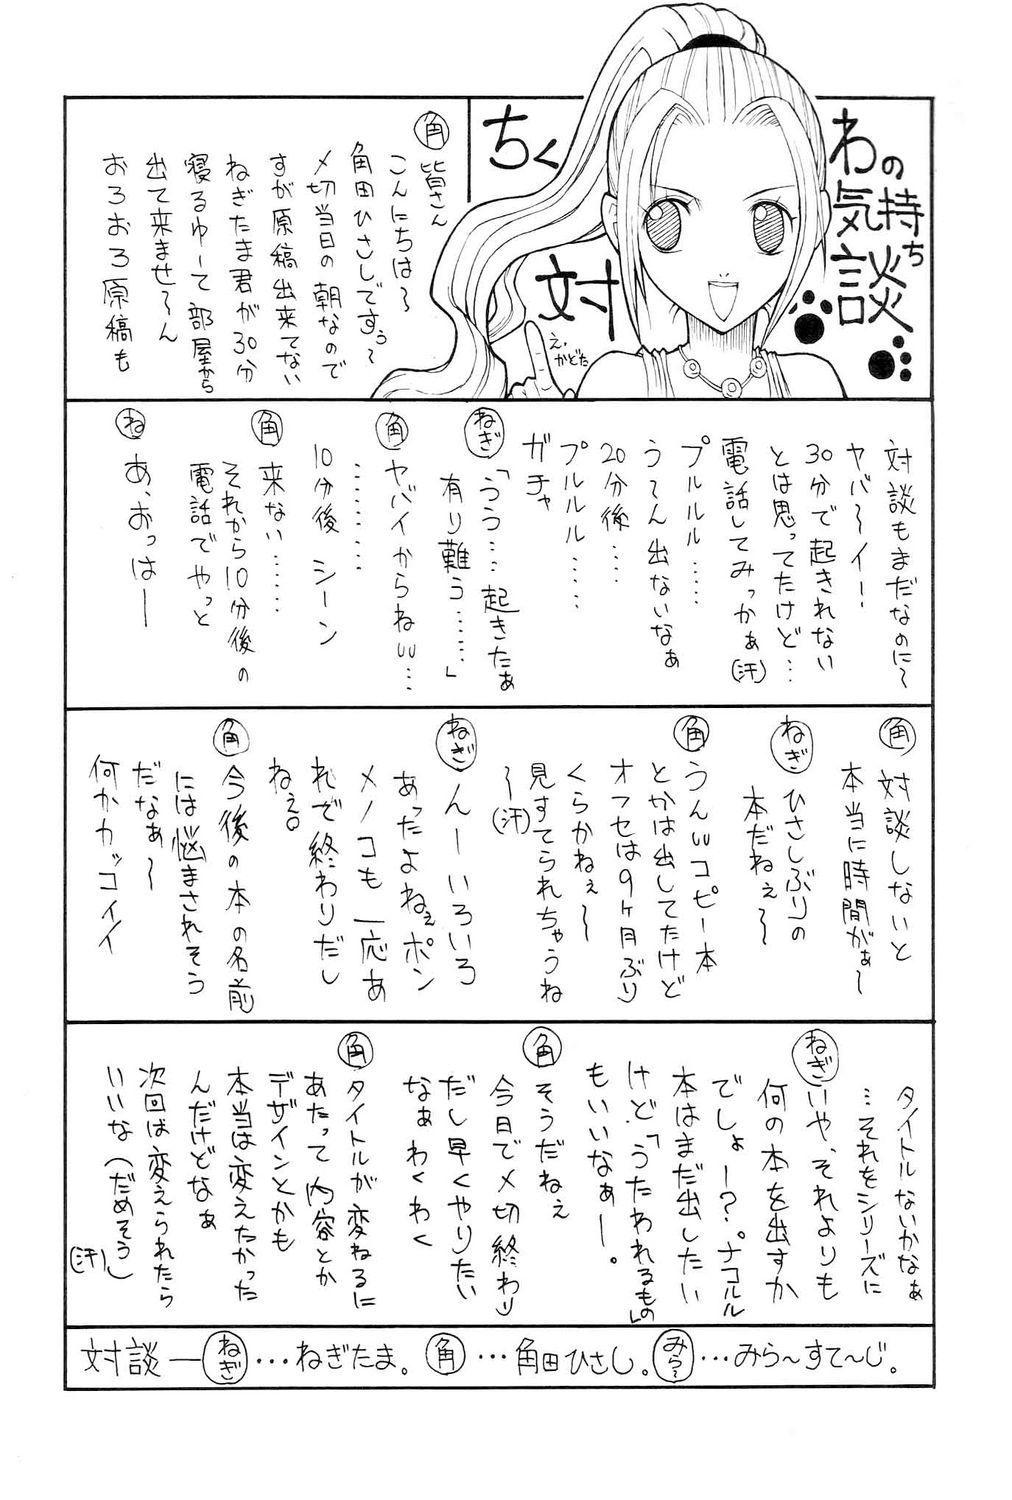 ちくわの気持ち
対談
え,かどた
角
皆さん
こんにちは〜
角田ひさしですぅ〜
〆切当日の朝なので
すが原稿出来てない
ねぎたま君が30分
寝るゆーて部屋から
出て来ませ〜ん
おろおろ原稿も
対談もまだなのに〜
ヤバ〜イー!
30分で起きれない
とは思ってたけど…
電話してみっかぁ(汗)
プルルル……
う〜ん出ないなぁ
20分後…
プルルル……
ガチャ
ねぎ「うう…起きたぁ
有り難う……」
角 ヤバイからねw…
………
10分後 シーン
角 来ない……
それから10分後の
電話でやっと
ね あ、おっはー
角 対談しないと
本当に時間がぁ〜
ねぎ ひさしぶりの
本だねぇ〜
角 うんwコピー本
とかは出してたけど
オフセは9ヶ月ぶり
くらかねぇ〜
見すてられちゃうね
〜(汗)
ねぎ んーいろいろ
あったよねぇポン
メノコも一応あ
れで終わりだし
ねぇ。
角 今後の本の名前
には悩まされそう
だなぁ〜
何かカッコイイ
タイトルないかなぁ
…それをシリーズに
ねぎ いや、それよりも
何の本を出すか
でしょー?ナコルル
本はまだ出したい
けど「うたわれるもの」
もいいなぁー。
角 そうだねぇ
今日で〆切終わり
だし早くやりたい
なぁ わくわく
角 タイトルが変ねるに
あたって内容とか
デザインとかも
本当は変えたかった
んだけどなぁ
次回は変えられたら
いいな(だめそう)
(汗)
対談―ねぎ…ねぎたま。角…角田ひさし。みら〜…みら〜すて〜じ。